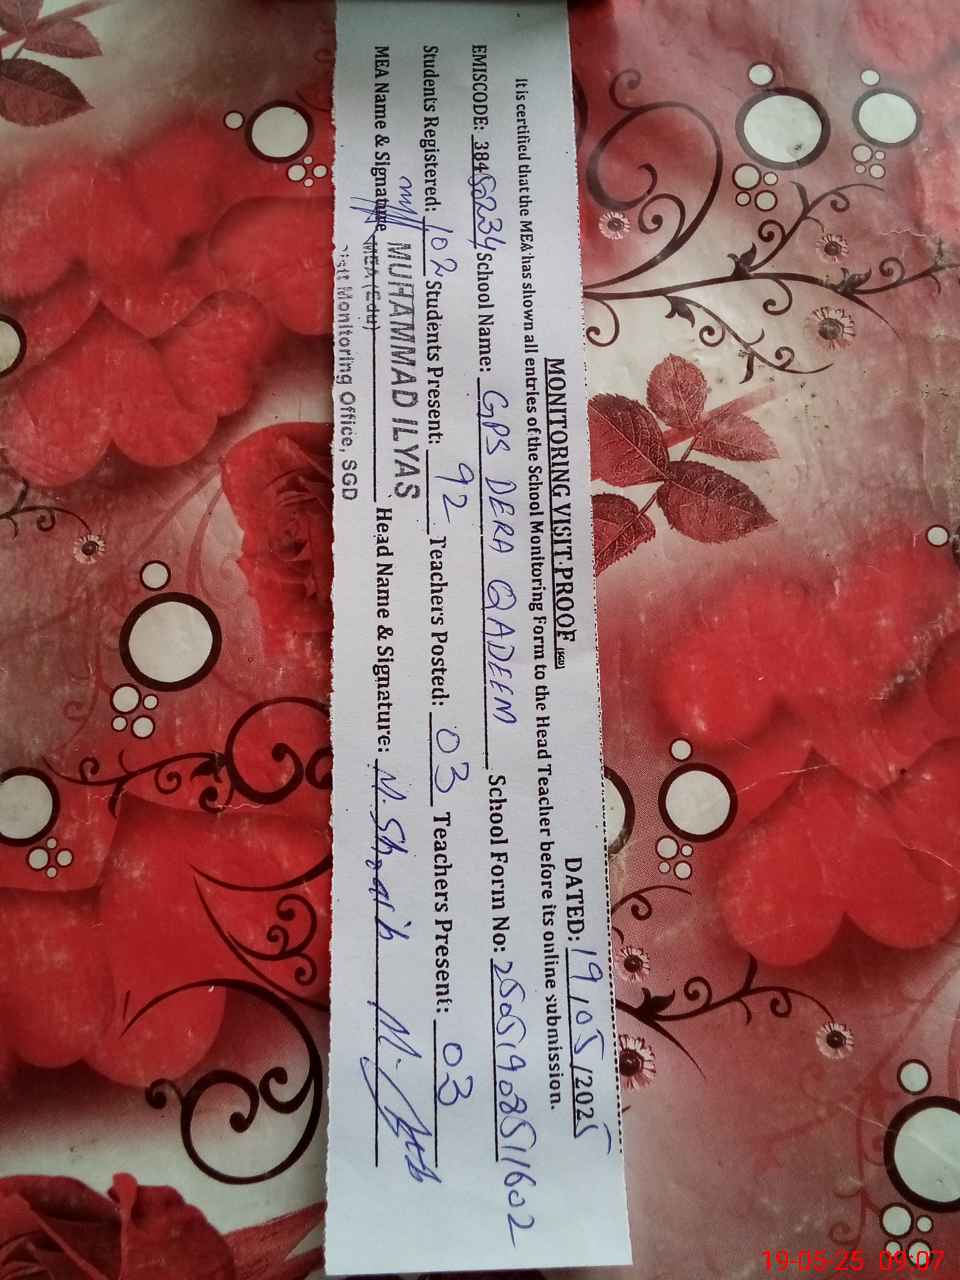 MONITORING VISIT PROOF (SGD) DATED: 19/05/2025
It is certified that the MEA has shown all entries of the School Monitoring Form to the Head Teacher before its online submission.
EMISCODE: 38450234 School Name: GPS DERA QADEEM School Form No: 25051908511602
Students Registered: 102 Students Present: 92 Teachers Posted: 03 Teachers Present: 03
MEA Name & Signature MUHAMMAD ILYAS Head Name & Signature: M. Shoaib
MEA (Edu)
Monitoring Office, SGD
19-05-25 09:07